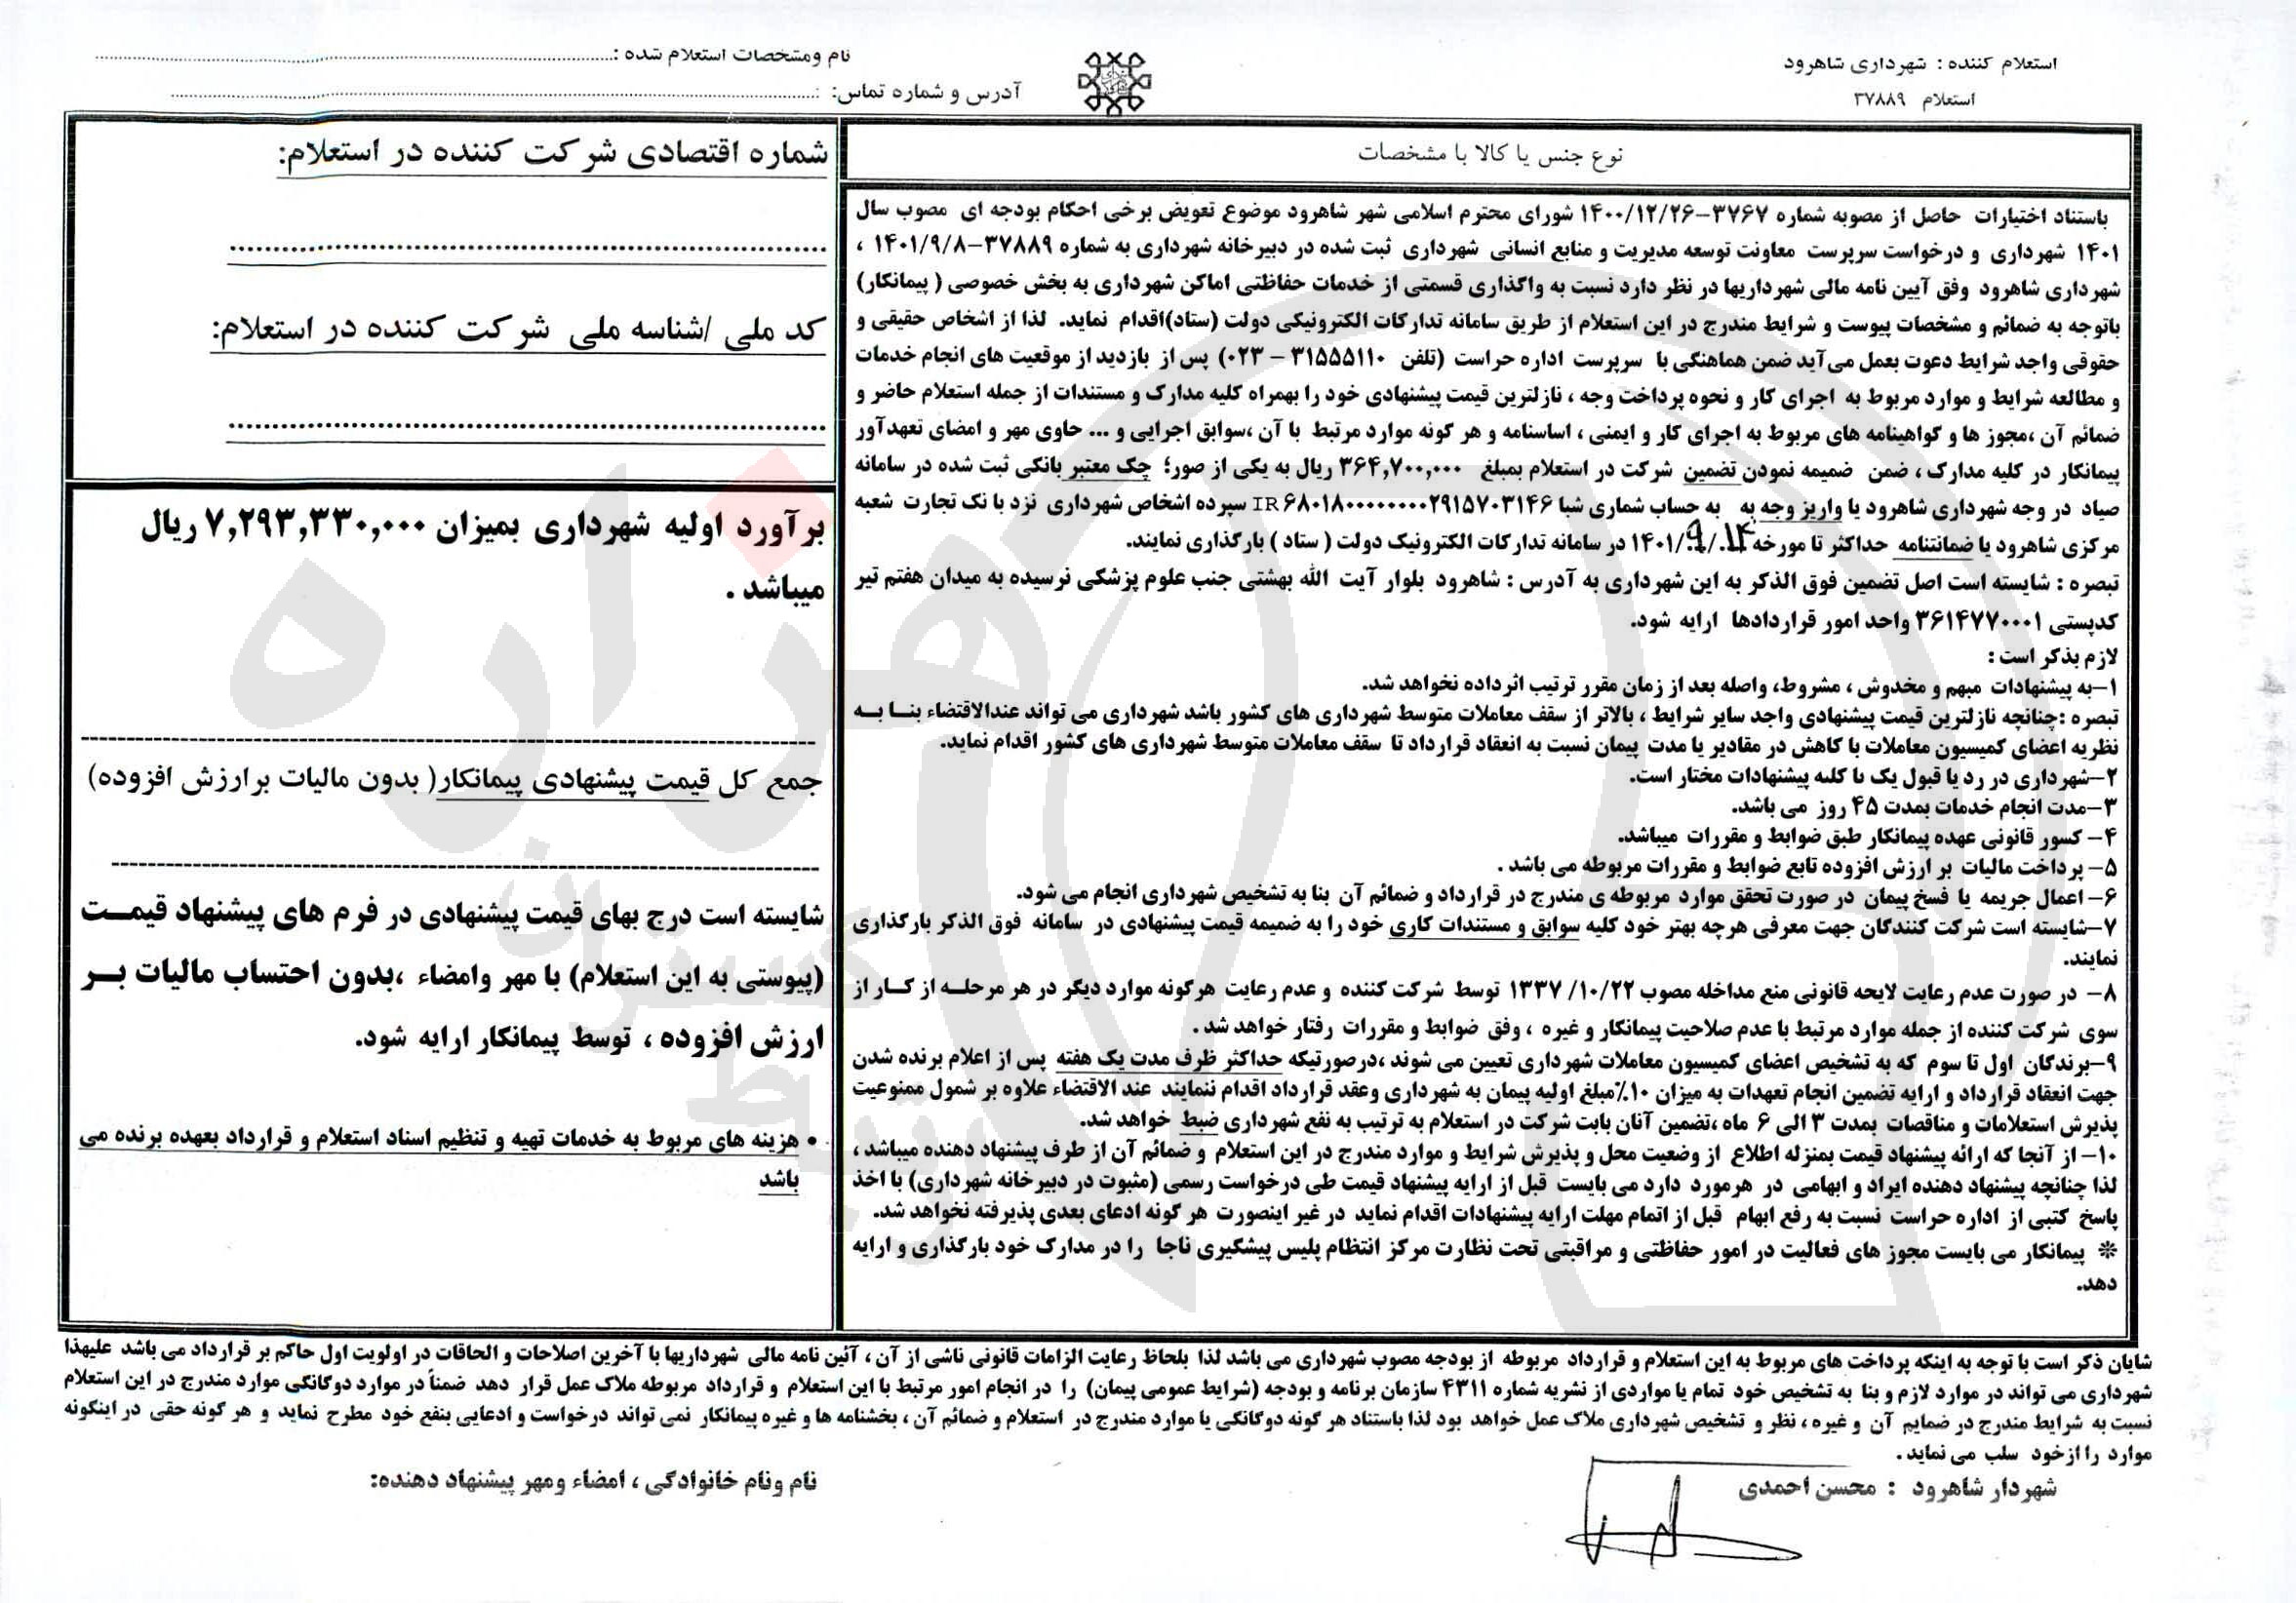 استعلام کننده : شهرداری شاهرود
استعلام ۳۷۸۸۹
نام ومشخصات استعلام شده :
آدرس و شماره تماس:
نوع جنس یا کالا با مشخصات
باستناد اختیارات حاصل از مصوبه شماره ۳۷۶۷-۱۴۰۰/۱۲/۲۶ شورای محترم اسلامی شهر شاهرود موضوع تعویض برخی احکام بودجه ای مصوب سال
۱۴۰۱ شهرداری و درخواست سرپرست معاونت توسعه مدیریت و منابع انسانی شهرداری ثبت شده در دبیرخانه شهرداری به شماره ۳۷۸۸۹-۱۴۰۱/۹/۸ ،
شهرداری شاهرود وفق آیین نامه مالی شهرداریها در نظر دارد نسبت به واگذاری قسمتی از خدمات حفاظتی اماکن شهرداری به بخش خصوصی ( پیمانکار)
باتوجه به ضمائم و مشخصات پیوست و شرایط مندرج در این استعلام از طریق سامانه تدارکات الکترونیکی دولت (ستاد)اقدام نماید. لذا از اشخاص حقیقی و
حقوقی واجد شرایط دعوت بعمل می‌آید ضمن هماهنگی با سرپرست اداره حراست (تلفن ۳۱۵۵۵۱۱۰ - ۰۲۳) پس از بازدید از موقعیت های انجام خدمات
و مطالعه شرایط و موارد مربوط به اجرای کار و نحوه پرداخت وجه ، نازلترین قیمت پیشنهادی خود را بهمراه کلیه مدارک و مستندات از جمله استعلام حاضر و
ضمائم آن ،مجوز ها و گواهینامه های مربوط به اجرای کار و ایمنی ، اساسنامه و هر گونه موارد مرتبط با آن ،سوابق اجرایی و ... حاوی مهر و امضای تعهدآور
پیمانکار در کلیه مدارک ، ضمن ضمیمه نمودن تضمین شرکت در استعلام بمبلغ ۳۶۴,۷۰۰,۰۰۰ ریال به یکی از صور؛ چک معتبر بانکی ثبت شده در سامانه
صیاد در وجه شهرداری شاهرود یا واریز وجه به به حساب شماری شبا IR۶۸۰۱۸۰۰۰۰۰۰۰۰۰۲۹۱۵۷۰۳۱۴۶ سپرده اشخاص شهرداری نزد با نک تجارت شعبه
مرکزی شاهرود یا ضمانتنامه حداکثر تا مورخه ۱۴۰۱/۹/۱۴ در سامانه تدارکات الکترونیک دولت ( ستاد ) بارگذاری نمایند.
تبصره : شایسته است اصل تضمین فوق الذکر به این شهرداری به آدرس : شاهرود بلوار آیت الله بهشتی جنب علوم پزشکی نرسیده به میدان هفتم تیر
کدپستی ۳۶۱۴۷۷۰۰۰۱ واحد امور قراردادها ارایه شود.
لازم بذکر است :
۱-به پیشنهادات مبهم و مخدوش ، مشروط، واصله بعد از زمان مقرر ترتیب اثرداده نخواهد شد.
تبصره :چنانچه نازلترین قیمت پیشنهادی واجد سایر شرایط ، بالاتر از سقف معاملات متوسط شهرداری های کشور باشد شهرداری می تواند عندالاقتضاء بنا به
نظریه اعضای کمیسیون معاملات با کاهش در مقادیر یا مدت پیمان نسبت به انعقاد قرارداد تا سقف معاملات متوسط شهرداری های کشور اقدام نماید.
۲-شهرداری در رد یا قبول یک یا کلیه پیشنهادات مختار است.
۳-مدت انجام خدمات بمدت ۴۵ روز می باشد.
۴- کسور قانونی عهده پیمانکار طبق ضوابط و مقررات میباشد.
۵- پرداخت مالیات بر ارزش افزوده تابع ضوابط و مقررات مربوطه می باشد .
۶- اعمال جریمه یا فسخ پیمان در صورت تحقق موارد مربوطه ی مندرج در قرارداد و ضمائم آن بنا به تشخیص شهرداری انجام می شود.
۷-شایسته است شرکت کنندگان جهت معرفی هرچه بهتر خود کلیه سوابق و مستندات کاری خود را به ضمیمه قیمت پیشنهادی در سامانه فوق الذکر بارگذاری
نمایند.
۸- در صورت عدم رعایت لایحه قانونی منع مداخله مصوب ۱۳۳۷/۱۰/۲۲ توسط شرکت کننده و عدم رعایت هرگونه موارد دیگر در هر مرحله از کار از
سوی شرکت کننده از جمله موارد مرتبط با عدم صلاحیت پیمانکار و غیره ، وفق ضوابط و مقررات رفتار خواهد شد .
۹-برندگان اول تا سوم که به تشخیص اعضای کمیسیون معاملات شهرداری تعیین می شوند ،درصورتیکه حداکثر ظرف مدت یک هفته پس از اعلام برنده شدن
جهت انعقاد قرارداد و ارایه تضمین انجام تعهدات به میزان ۱۰٪مبلغ اولیه پیمان به شهرداری وعقد قرارداد اقدام ننمایند عند الاقتضاء علاوه بر شمول ممنوعیت
پذیرش استعلامات و مناقصات بمدت ۳ الی ۶ ماه ،تضمین آنان بابت شرکت در استعلام به ترتیب به نفع شهرداری ضبط خواهد شد.
۱۰- از آنجا که ارائه پیشنهاد قیمت بمنزله اطلاع از وضعیت محل و پذیرش شرایط و موارد مندرج در این استعلام و ضمائم آن از طرف پیشنهاد دهنده میباشد ،
لذا چنانچه پیشنهاد دهنده ایراد و ابهامی در هرمورد دارد می بایست قبل از ارایه پیشنهاد قیمت طی درخواست رسمی (مثبوت در دبیرخانه شهرداری) با اخذ
پاسخ کتبی از اداره حراست نسبت به رفع ابهام قبل از اتمام مهلت ارایه پیشنهادات اقدام نماید در غیر اینصورت هر گونه ادعای بعدی پذیرفته نخواهد شد.
❋ پیمانکار می بایست مجوز های فعالیت در امور حفاظتی و مراقبتی تحت نظارت مرکز انتظام پلیس پیشگیری ناجا را در مدارک خود بارگذاری و ارایه
دهد.
شماره اقتصادی شرکت کننده در استعلام:
کد ملی /شناسه ملی شرکت کننده در استعلام:
برآورد اولیه شهرداری بمیزان ۷,۲۹۳,۳۳۰,۰۰۰ ریال
میباشد .
جمع کل قیمت پیشنهادی پیمانکار( بدون مالیات برارزش افزوده)
شایسته است درج بهای قیمت پیشنهادی در فرم های پیشنهاد قیمت
(پیوستی به این استعلام) با مهر وامضاء ،بدون احتساب مالیات بر
ارزش افزوده ، توسط پیمانکار ارایه شود.
• هزینه های مربوط به خدمات تهیه و تنظیم اسناد استعلام و قرارداد بعهده برنده می
باشد
شایان ذکر است با توجه به اینکه پرداخت های مربوط به این استعلام و قرارداد مربوطه از بودجه مصوب شهرداری می باشد لذا بلحاظ رعایت الزامات قانونی ناشی از آن ، آئین نامه مالی شهرداریها با آخرین اصلاحات و الحاقات در اولویت اول حاکم بر قرارداد می باشد علیهذا
شهرداری می تواند در موارد لازم و بنا به تشخیص خود تمام یا مواردی از نشریه شماره ۴۳۱۱ سازمان برنامه و بودجه (شرایط عمومی پیمان) را در انجام امور مرتبط با این استعلام و قرارداد مربوطه ملاک عمل قرار دهد ضمناً در موارد دوگانگی موارد مندرج در این استعلام
نسبت به شرایط مندرج در ضمایم آن و غیره ، نظر و تشخیص شهرداری ملاک عمل خواهد بود لذا باستناد هر گونه دوگانگی یا موارد مندرج در استعلام و ضمائم آن ، بخشنامه ها و غیره پیمانکار نمی تواند درخواست و ادعایی بنفع خود مطرح نماید و هر گونه حقی در اینگونه
موارد را ازخود سلب می نماید .
شهردار شاهرود : محسن احمدی
نام ونام خانوادگی ، امضاء ومهر پیشنهاد دهنده:
هزاره